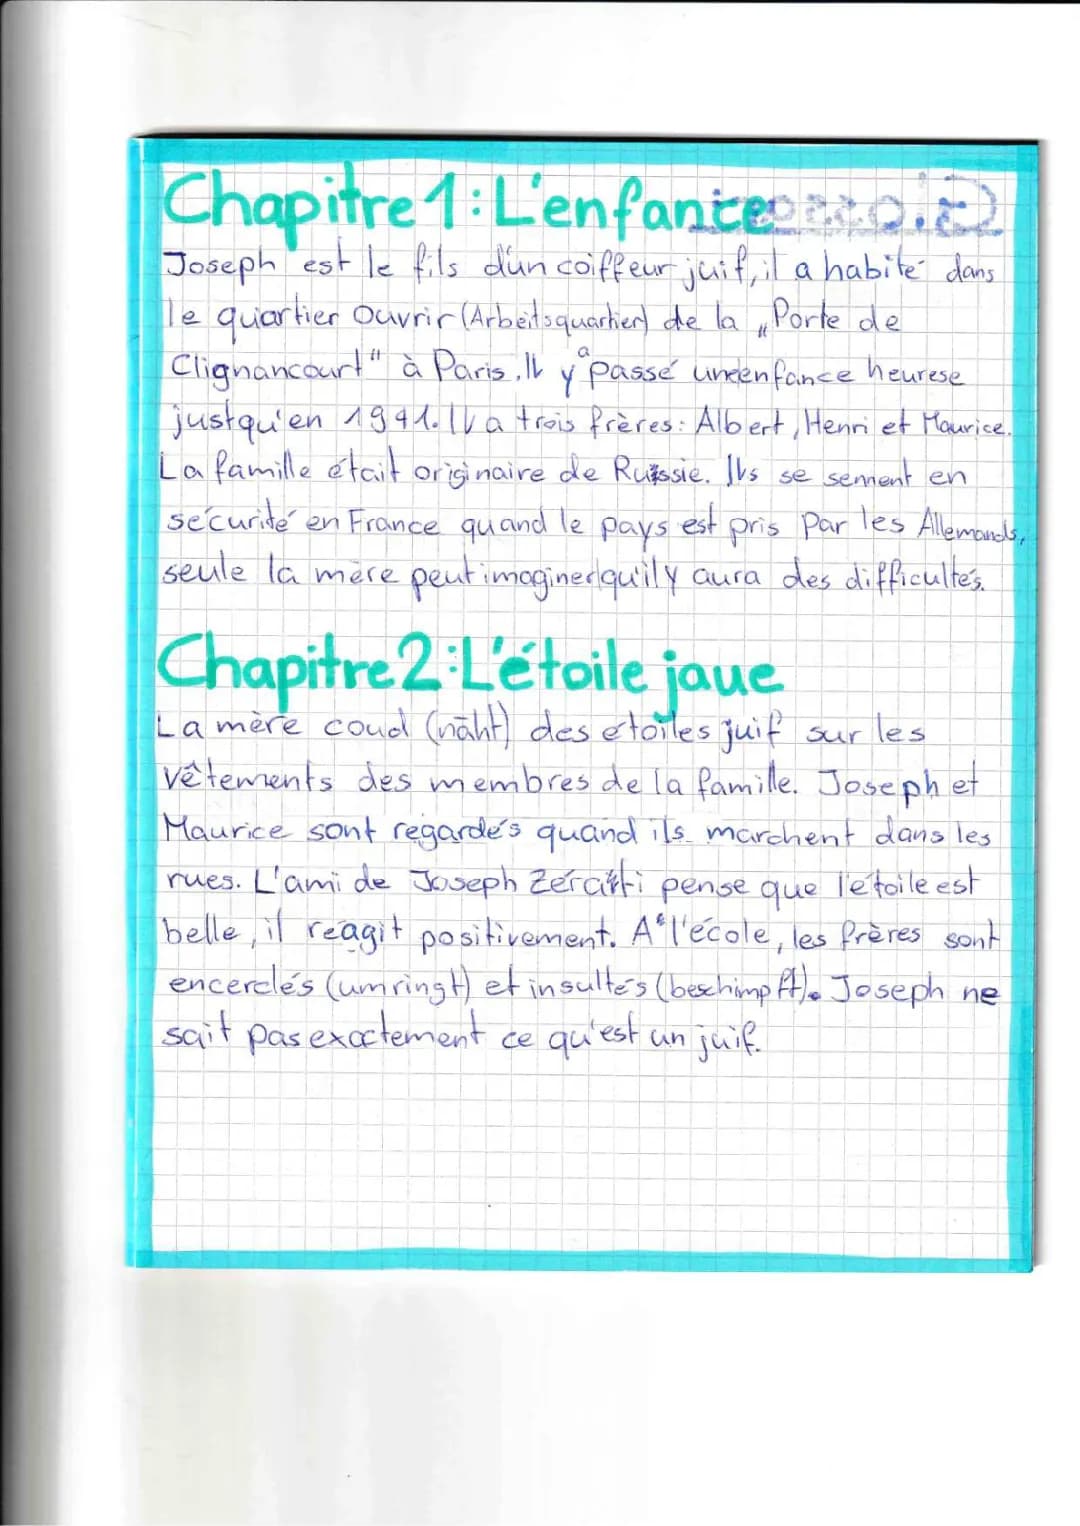 Chapitre 1: L'enfance
Joseph est le fils d'un coiffeur juif, il a habité dans
le quartier ouvrir (Arbeitsquartier) de la „Porte de
Clignancourt" à Paris. Il y a passé une enfance heurese
justqu'en 1941. Il a trois frères: Albert, Henri et Maurice.
La famille était originaire de Russie. Ils se sennent en
securité en France quand le pays est pris par les Allemands,
seule la mère peut imaginer qu'il y aura des difficultés.
Chapitre 2: L'étoile jaue
La mère coud (näht) des etoiles juif sur les
vêtements des membres de la famille. Joseph et
Maurice sont regardés quand ils marchent dans les
rues. L'ami de Joseph Zérati pense que l'étoile est
belle, il réagit positivement. A l'école, les frères sont
encerclés (umringt) et insultés (beschimpft). Joseph ne
sait pas exactement ce qu'est un juif.